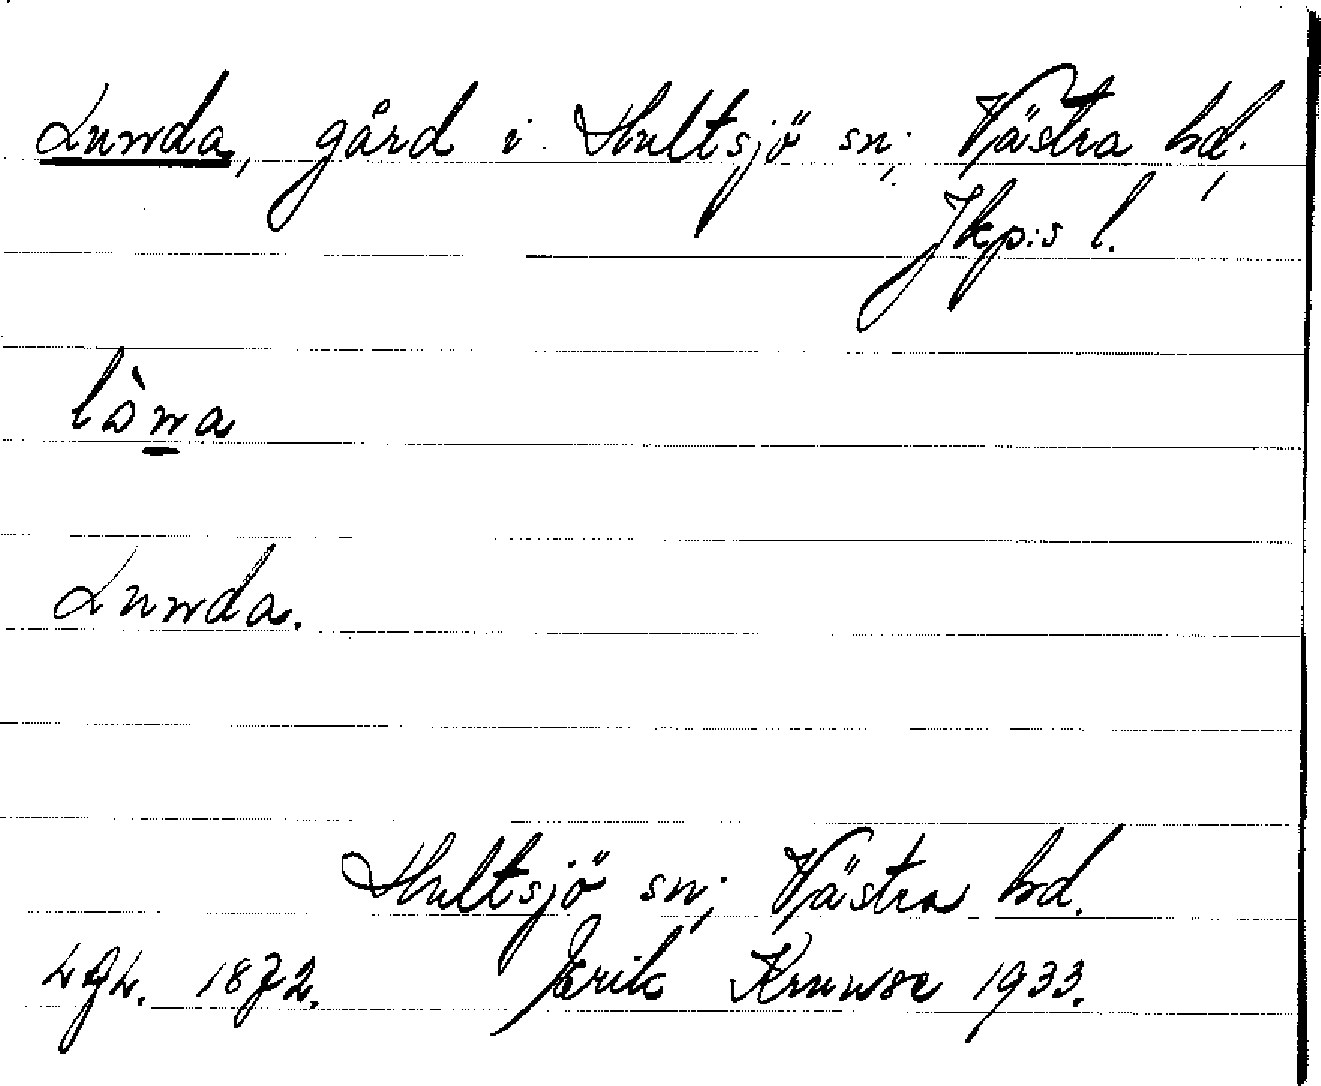 Lunnda, gård i Hultsjö sn; Västra hd;
Jkp:s l.
lònna
Lunnda.
Hultsjö sn; Västra hd.
1872. Erik Kruuse 1933.